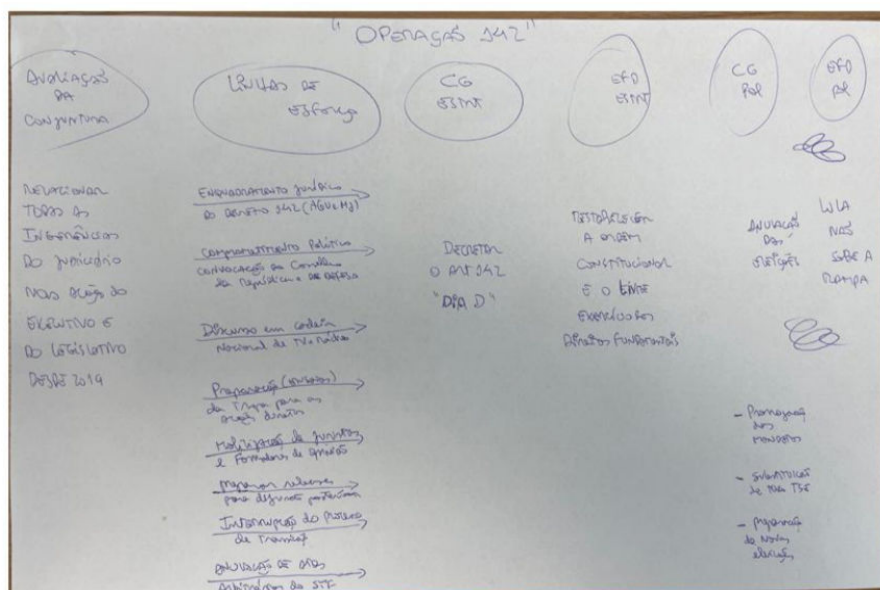 "OPERAÇÃO 142"
AVALIAÇÃO
DA
CONJUNTURA
LINHAS DE
ESFORÇO
CG
ESINT
EFD
ESINT
CG
POL
EFD
POL
RELACIONAR
TODAS AS
INGERÊNCIAS
DO JUDICIÁRIO
NAS AÇÕES DO
EXECUTIVO E
DO LEGISLATIVO
DESDE 2019
ENQUADRAMENTO JURÍDICO
DO DECRETO 142 (AGU e MJ)
COMPROMETIMENTO POLÍTICO
CONVOCAÇÃO do Conselho
da República e da DEFESA
Discurso em cadeia
Nacional de TV e Rádio
Preparação
da Tropa para as
ações diretas
Mobilização de juristas
e Formadores de opinião
para
Interrupção do processo
de Transição
ANULAÇÃO DE ATOS
Arbitrários do STF
DECRETAR
O ART 142
"DIA D"
RESTABELECER
A ORDEM
CONSTITUCIONAL
E O LIVRE
EXERCÍCIO DOS
DIREITOS FUNDAMENTAIS
ANULAÇÃO
DAS
ELEIÇÕES
- Prorrogação
dos
MANDATOS
- SUBSTITUIÇÃO
de todo TSE
- preparação
de Novas
eleições
LULA
NÃO
SOBE A
RAMPA